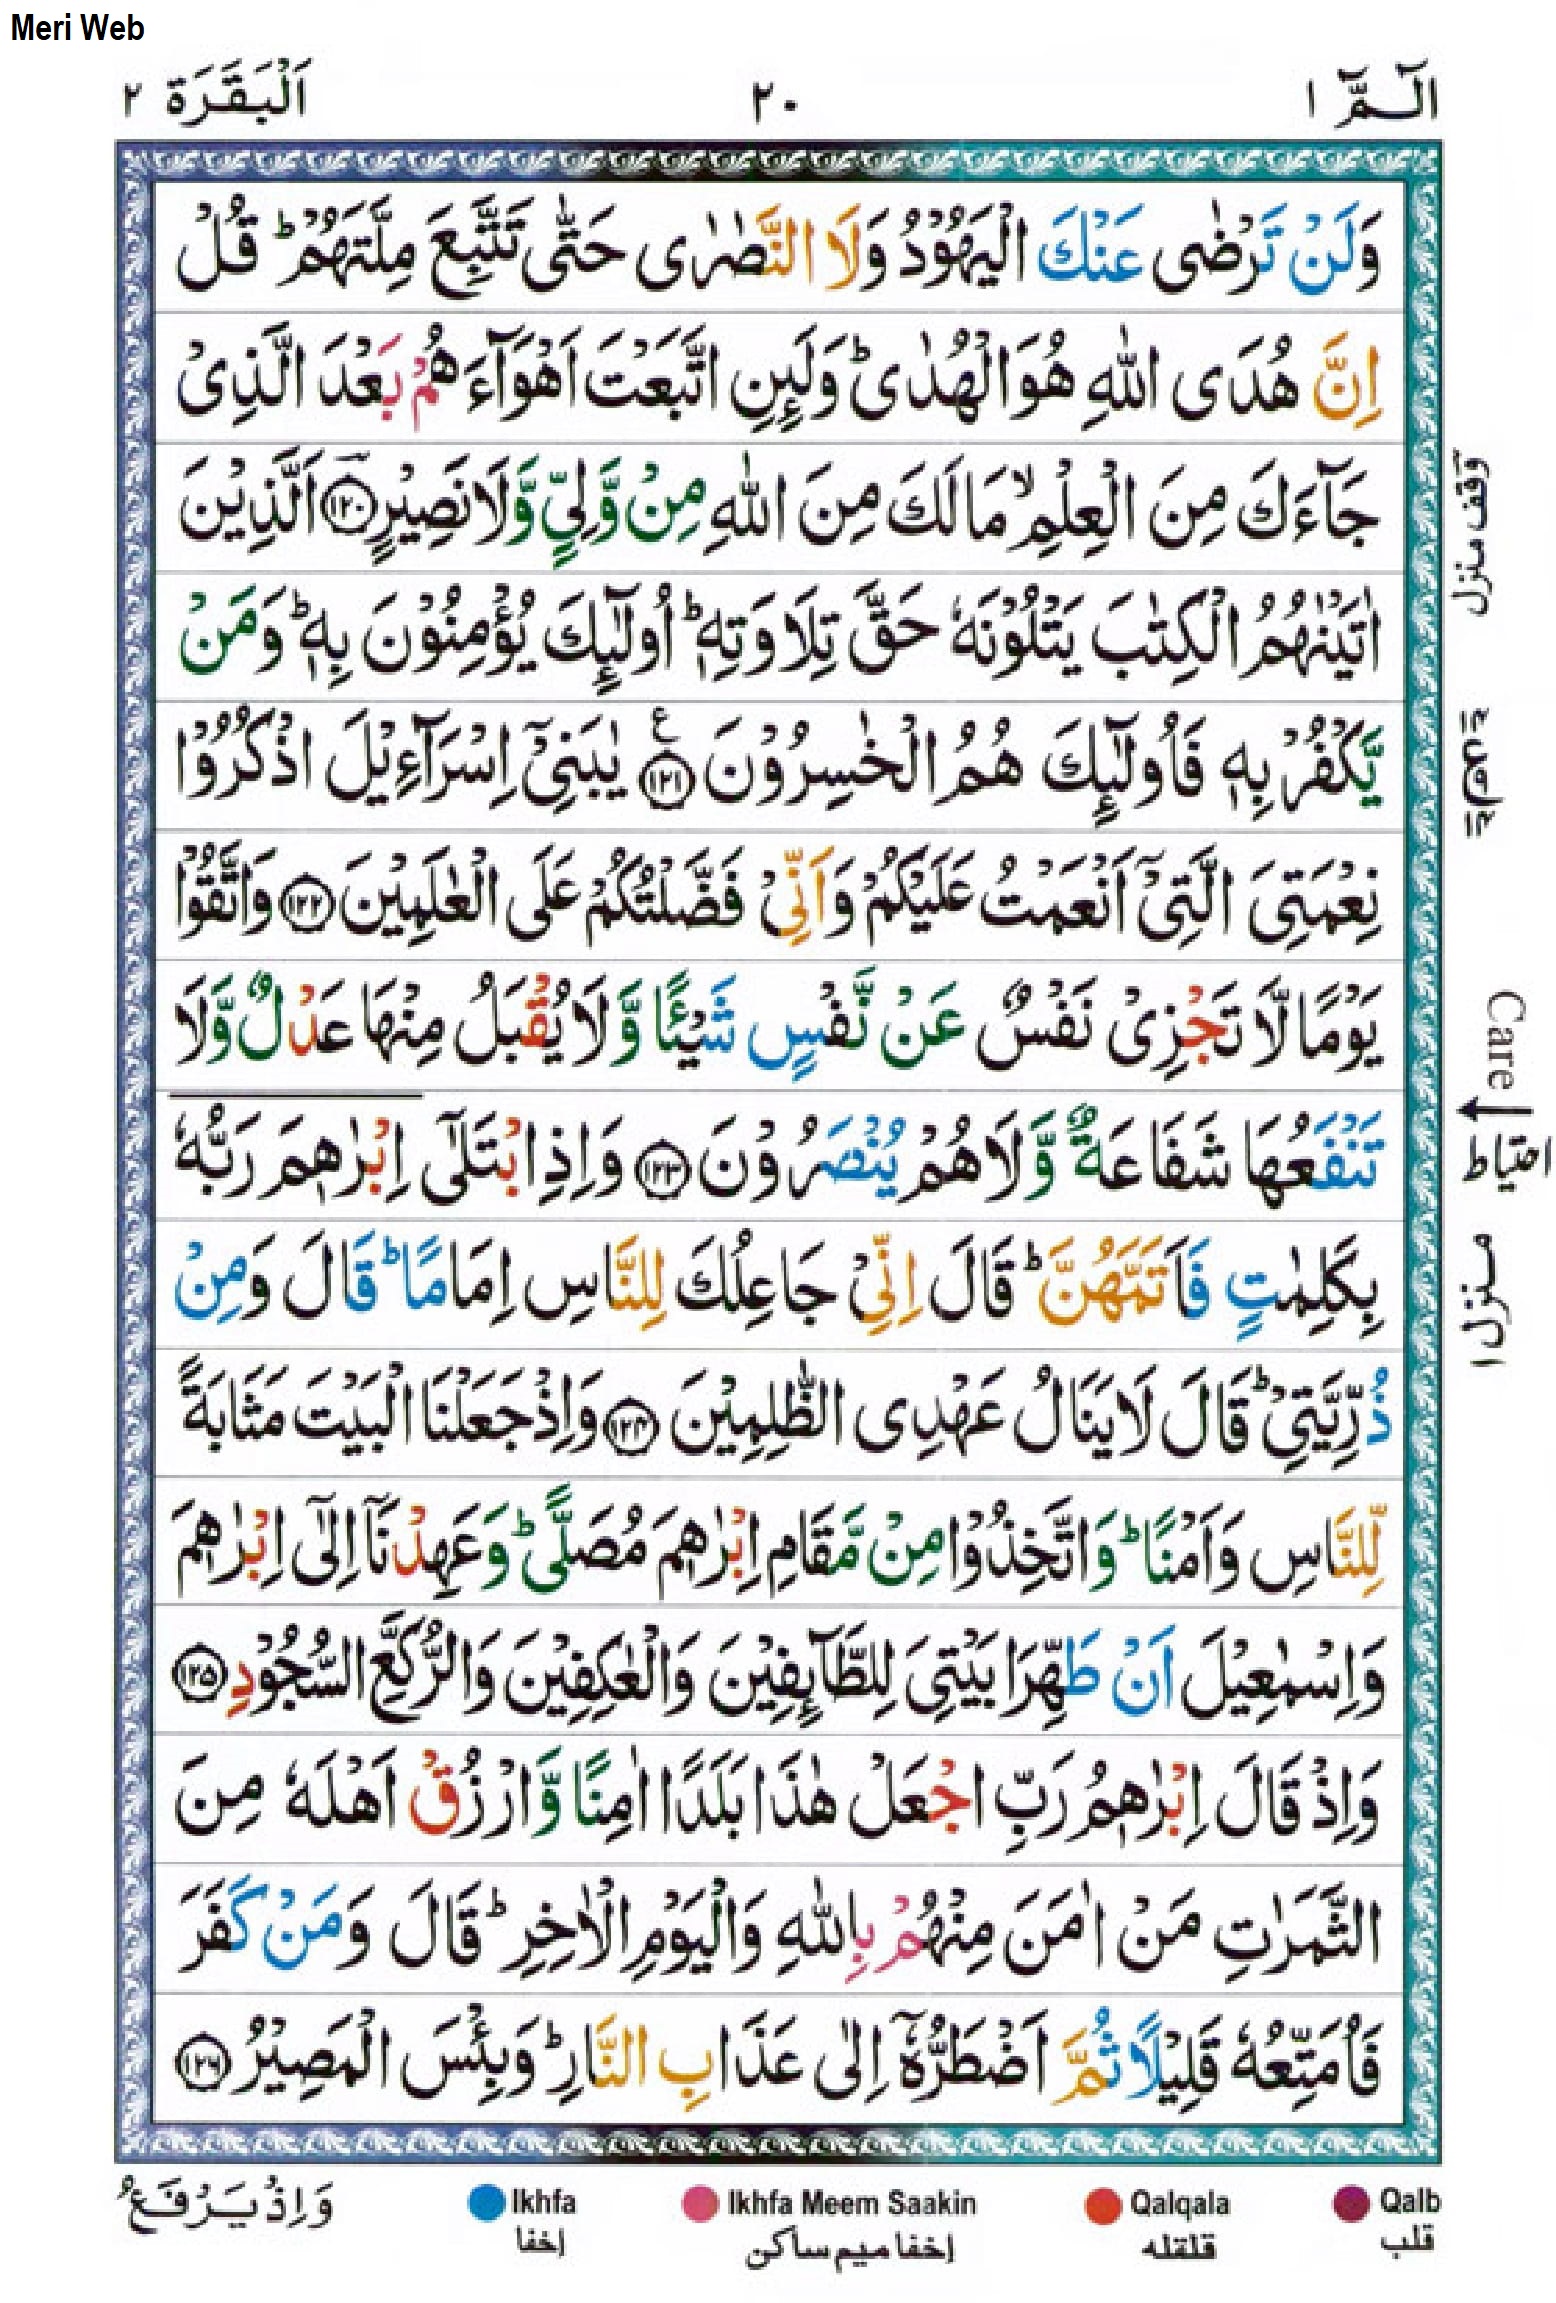 Meri Web
الٓمّٓ ۱
۲۰
اَلْبَقَرَة ۲
وَلَنْ تَرْضٰى عَنْكَ الْيَهُوْدُ وَلَا النَّصٰرٰى حَتّٰى تَتَّبِعَ مِلَّتَهُمْ ؕ قُلْ
اِنَّ هُدَى اللّٰهِ هُوَ الْهُدٰى ؕ وَلَئِنِ اتَّبَعْتَ اَهْوَآءَهُمْ بَعْدَ الَّذِىْ
جَآءَكَ مِنَ الْعِلْمِ ۙ مَا لَكَ مِنَ اللّٰهِ مِنْ وَّلِىٍّ وَّلَا نَصِيْرٍ ؔ ﴿۱۲۰﴾ اَلَّذِيْنَ
اٰتَيْنٰهُمُ الْكِتٰبَ يَتْلُوْنَهٗ حَقَّ تِلَاوَتِهٖ ؕ اُولٰٓئِكَ يُؤْمِنُوْنَ بِهٖ ؕ وَمَنْ
يَّكْفُرْ بِهٖ فَاُولٰٓئِكَ هُمُ الْخٰسِرُوْنَ ﴿۱۲۱﴾ ع يٰبَنِىْٓ اِسْرَآءِيْلَ اذْكُرُوْا
نِعْمَتِىَ الَّتِىْٓ اَنْعَمْتُ عَلَيْكُمْ وَاَنِّىْ فَضَّلْتُكُمْ عَلَى الْعٰلَمِيْنَ ﴿۱۲۲﴾ وَاتَّقُوْا
يَوْمًا لَّا تَجْزِىْ نَفْسٌ عَنْ نَّفْسٍ شَيْئًا وَّلَا يُقْبَلُ مِنْهَا عَدْلٌ وَّلَا
تَنْفَعُهَا شَفَاعَةٌ وَّلَا هُمْ يُنْصَرُوْنَ ﴿۱۲۳﴾ وَاِذِ ابْتَلٰٓى اِبْرٰهٖمَ رَبُّهٗ
بِكَلِمٰتٍ فَاَتَمَّهُنَّ ؕ قَالَ اِنِّىْ جَاعِلُكَ لِلنَّاسِ اِمَامًا ؕ قَالَ وَمِنْ
ذُرِّيَّتِىْ ؕ قَالَ لَا يَنَالُ عَهْدِى الظّٰلِمِيْنَ ﴿۱۲۴﴾ وَاِذْ جَعَلْنَا الْبَيْتَ مَثَابَةً
لِّلنَّاسِ وَاَمْنًا ؕ وَاتَّخِذُوْا مِنْ مَّقَامِ اِبْرٰهٖمَ مُصَلًّى ؕ وَعَهِدْنَآ اِلٰٓى اِبْرٰهٖمَ
وَاِسْمٰعِيْلَ اَنْ طَهِّرَا بَيْتِىَ لِلطَّآئِفِيْنَ وَالْعٰكِفِيْنَ وَالرُّكَّعِ السُّجُوْدِ ﴿۱۲۵﴾
وَاِذْ قَالَ اِبْرٰهٖمُ رَبِّ اجْعَلْ هٰذَا بَلَدًا اٰمِنًا وَّارْزُقْ اَهْلَهٗ مِنَ
الثَّمَرٰتِ مَنْ اٰمَنَ مِنْهُمْ بِاللّٰهِ وَالْيَوْمِ الْاٰخِرِ ؕ قَالَ وَمَنْ كَفَرَ
فَاُمَتِّعُهٗ قَلِيْلًا ثُمَّ اَضْطَرُّهٗٓ اِلٰى عَذَابِ النَّارِ ؕ وَبِئْسَ الْمَصِيْرُ ﴿۱۲۶﴾
وقف منزل
Care
احتیاط
منزل ۱
Qalb
قلب
Qalqala
قلقله
Ikhfa Meem Saakin
إخفا میم ساکن
Ikhfa
إخفا
وَاِذْ يَرْفَعُ